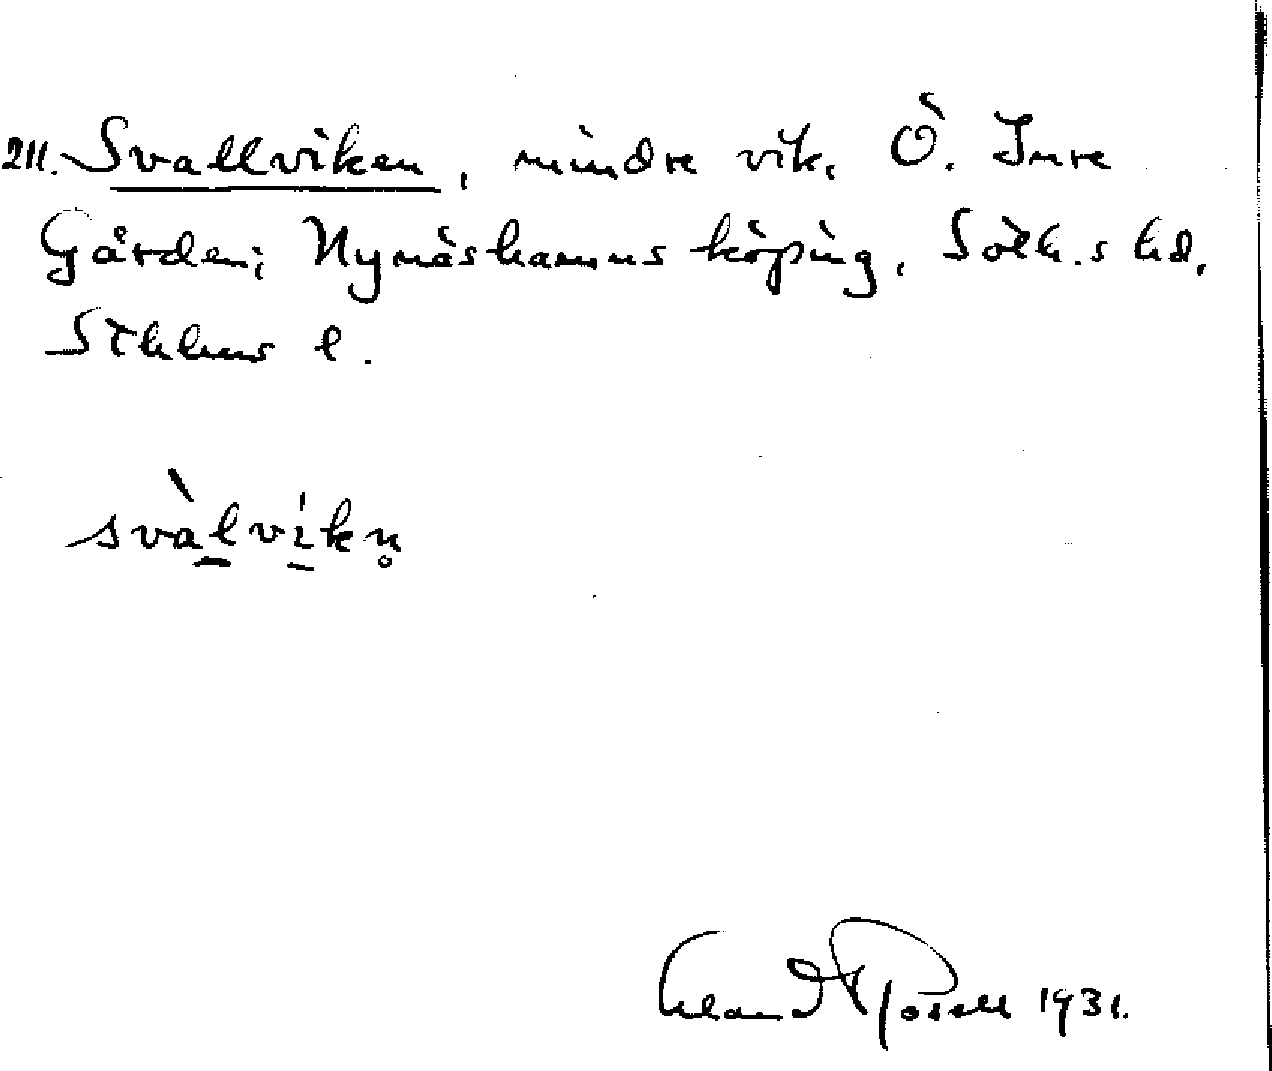 211. Svallviken, mindre vik. Ö. Inre
Gården; Nynäshamns köping, Soth.s hd,
Sthlms l.
svàlvíkn̥
Erland Rosell 1931.